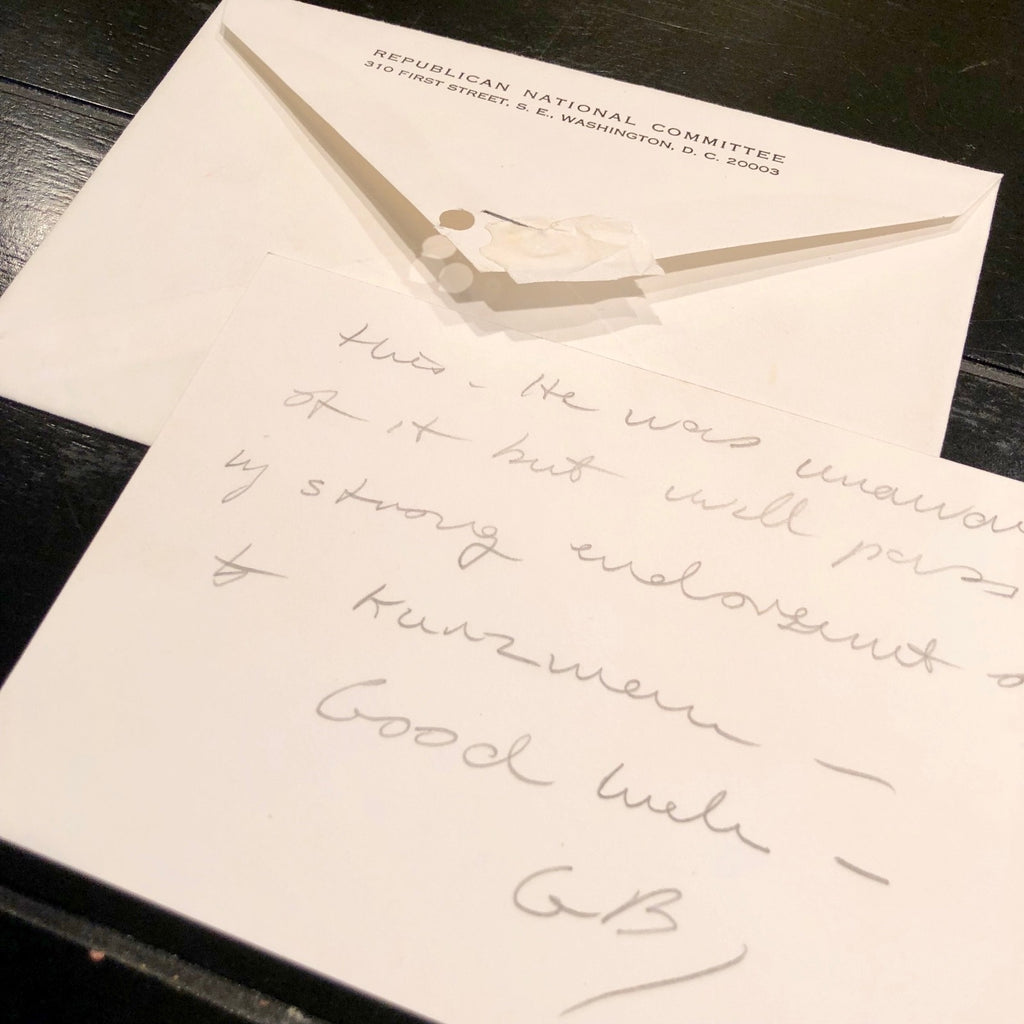 REPUBLICAN NATIONAL COMMITTEE
310 FIRST STREET, S. E., WASHINGTON, D. C. 20003
this - He was unaware
of it but will pass
my strong endorsement
to Kurzman —
Good luck —
GB